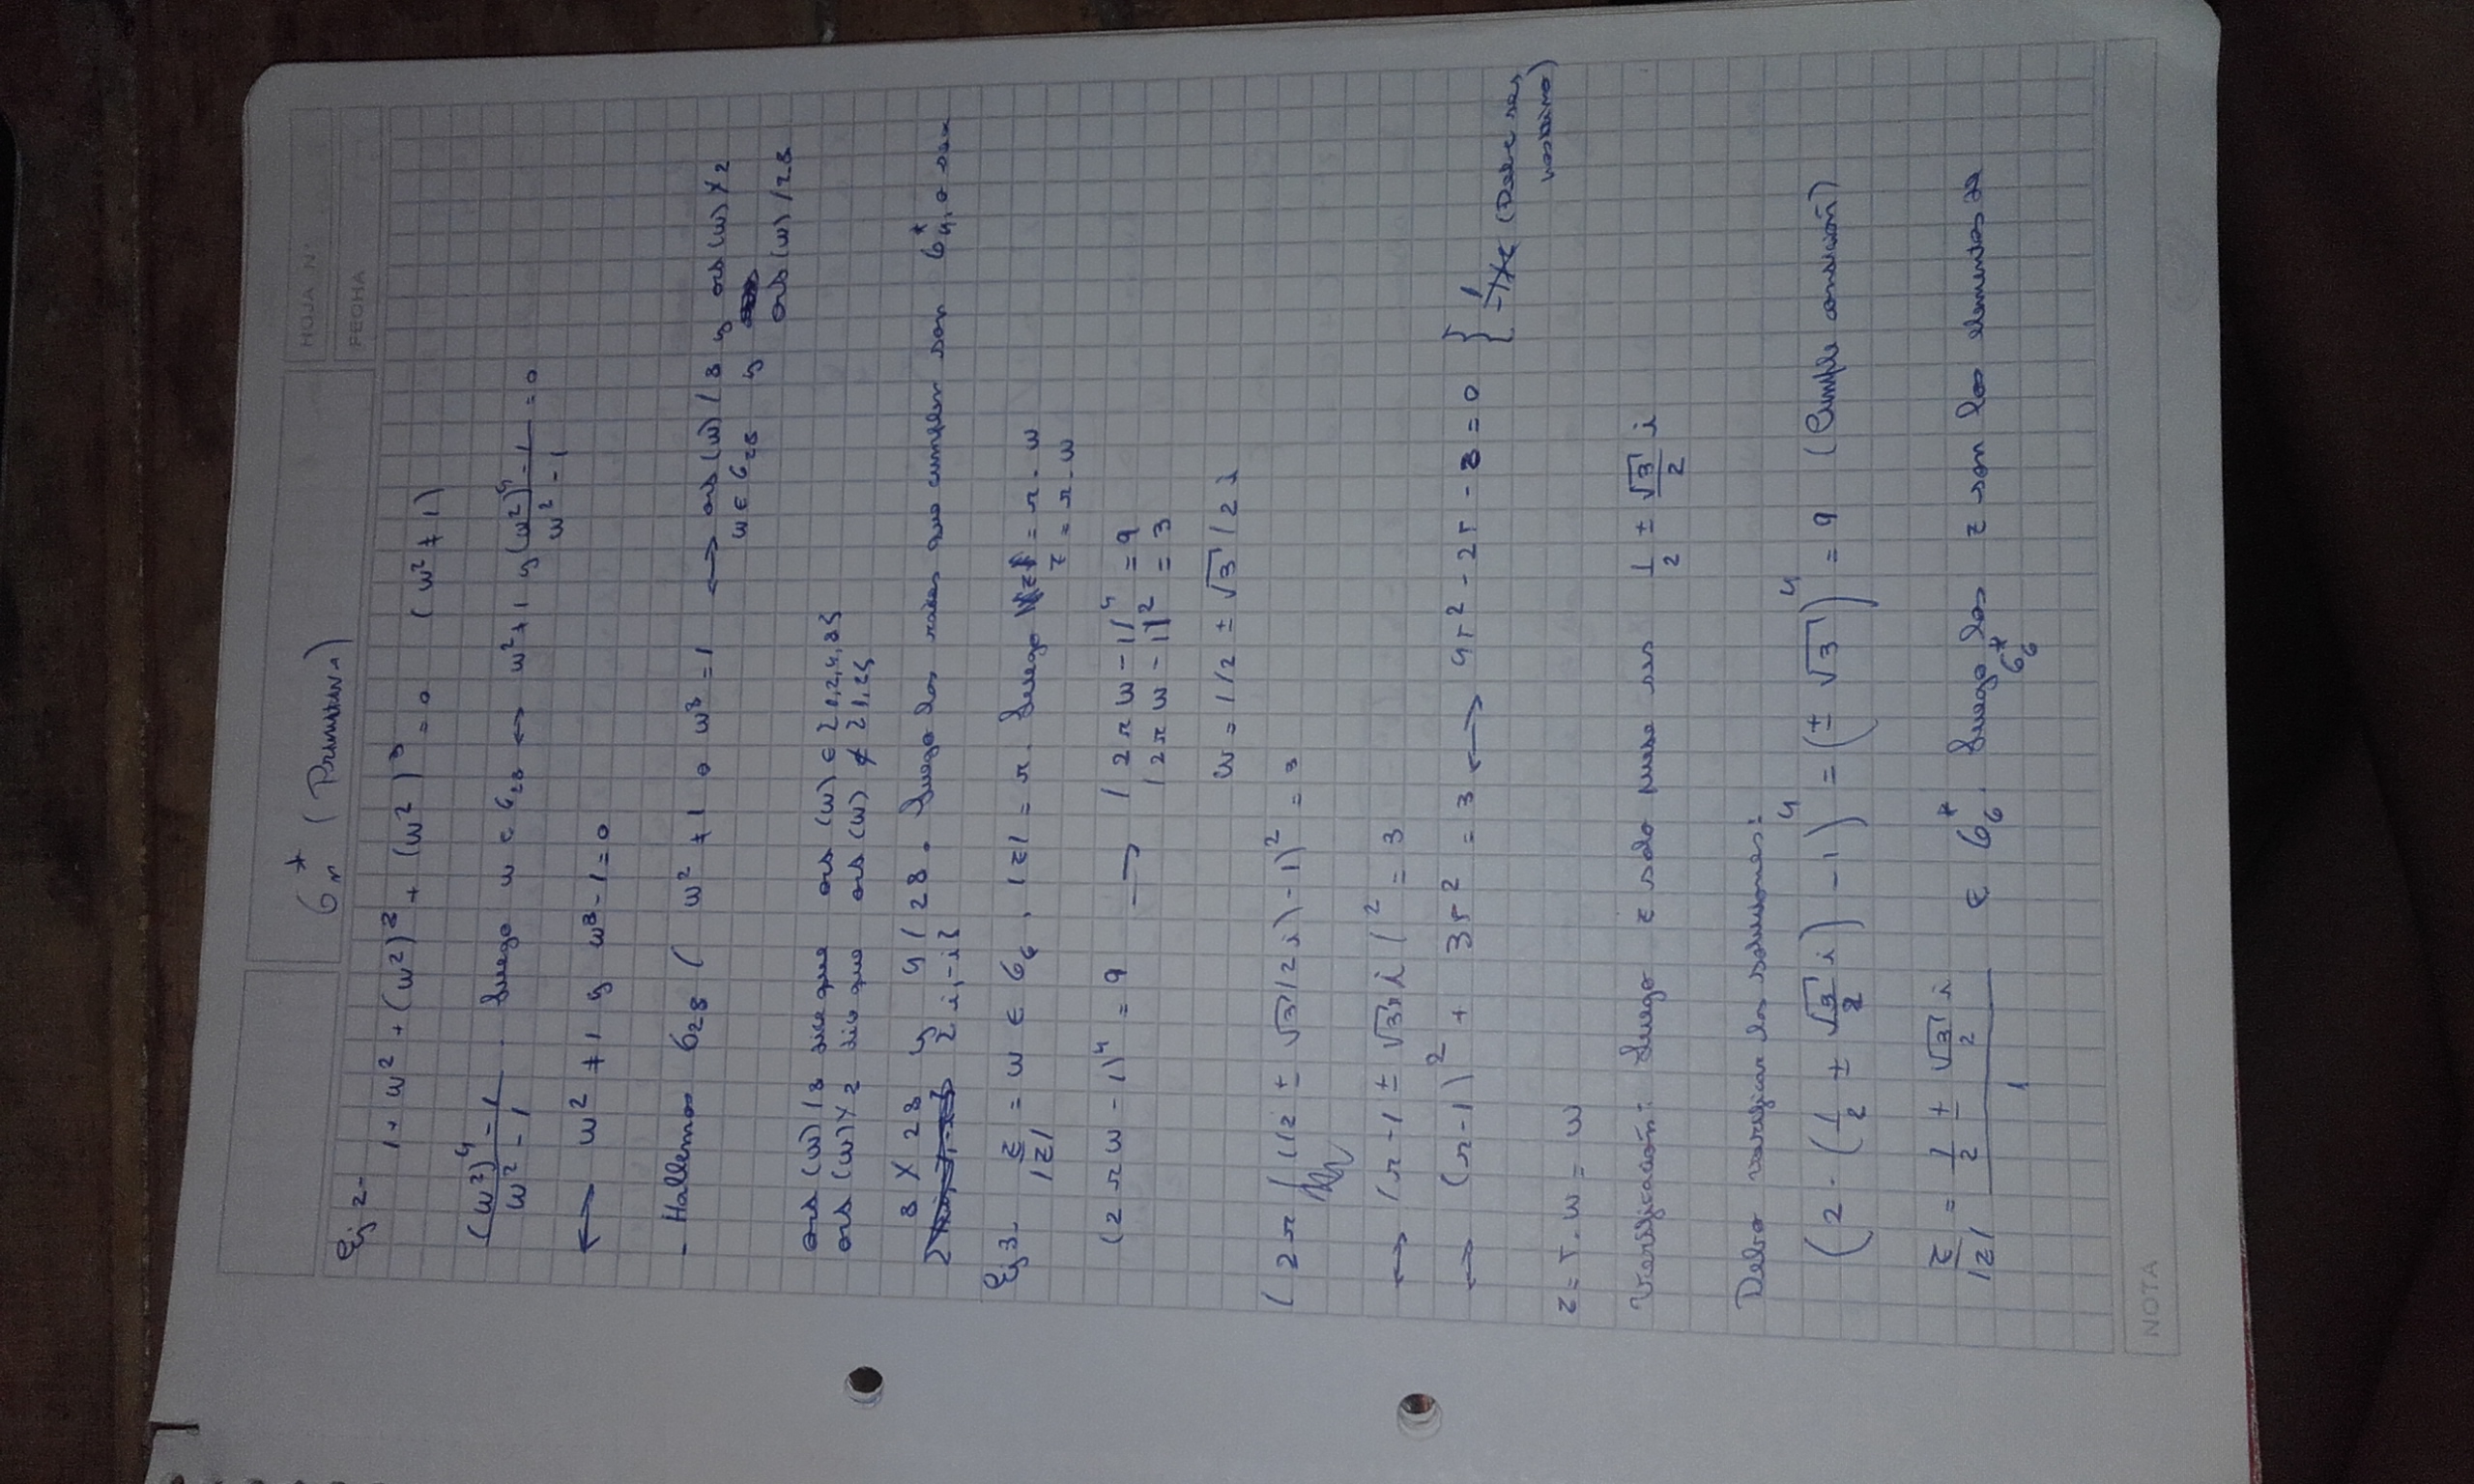 G_n^* (Primitiva)
HOJA N°
FECHA
Ej 2-
1 + w² + (w²)² + (w²)³ = 0 (w² ≠ 1)
(w²)⁴ - 1 / w² - 1 . Luego w ∈ G₂₈ ↔ w² ≠ 1 y (w²)⁴ - 1 / w² - 1 = 0
↔ w² ≠ 1 y w⁸ - 1 = 0
- Hallemos G₂₈ ( w² ≠ 1 o w⁸ = 1 ↔ ord (w) / 8 y ord (w) ∤ 2
w ∈ G₂₈ y
ord (w) / 28
ord (w) / 8 dice que ord (w) ∈ {1,2,4,8}
ord (w) ∤ 2 dice que ord (w) ∉ {1,2}
8 ∤ 28 y 4 / 28. Luego las raíces que cumplen son G₄^*, o sea
{i, -i}
Ej 3- z / |z| = w ∈ G₆, |z| = r. Luego = r . w
z = r . w
(2 r w - 1)⁴ = 9 → | 2 r w - 1 |⁴ = 9
| 2 r w - 1 |² = 3
w = 1/2 ± √3 / 2 i
( 2r ( 1/2 ± √3 / 2 i) - 1)² = 3
↔ | r - 1 ± √3r i |² = 3
↔ (r-1)² + 3r² = 3 ↔ 4r² - 2r - 2 = 0 { 1
(Debe ser
positivo)
z = r . w = w
Verificación: Luego z solo puede ser 1/2 ± √3/2 i
Debo verificar las soluciones:
(2 · (1/2 ± √3/2 i) - 1)⁴ = (± √3)⁴ = 9 (Cumple condición)
z / |z| = 1/2 ± √3/2 i / 1 ∈ G₆^*. Luego los z son los elementos de
G₆^*
NOTA